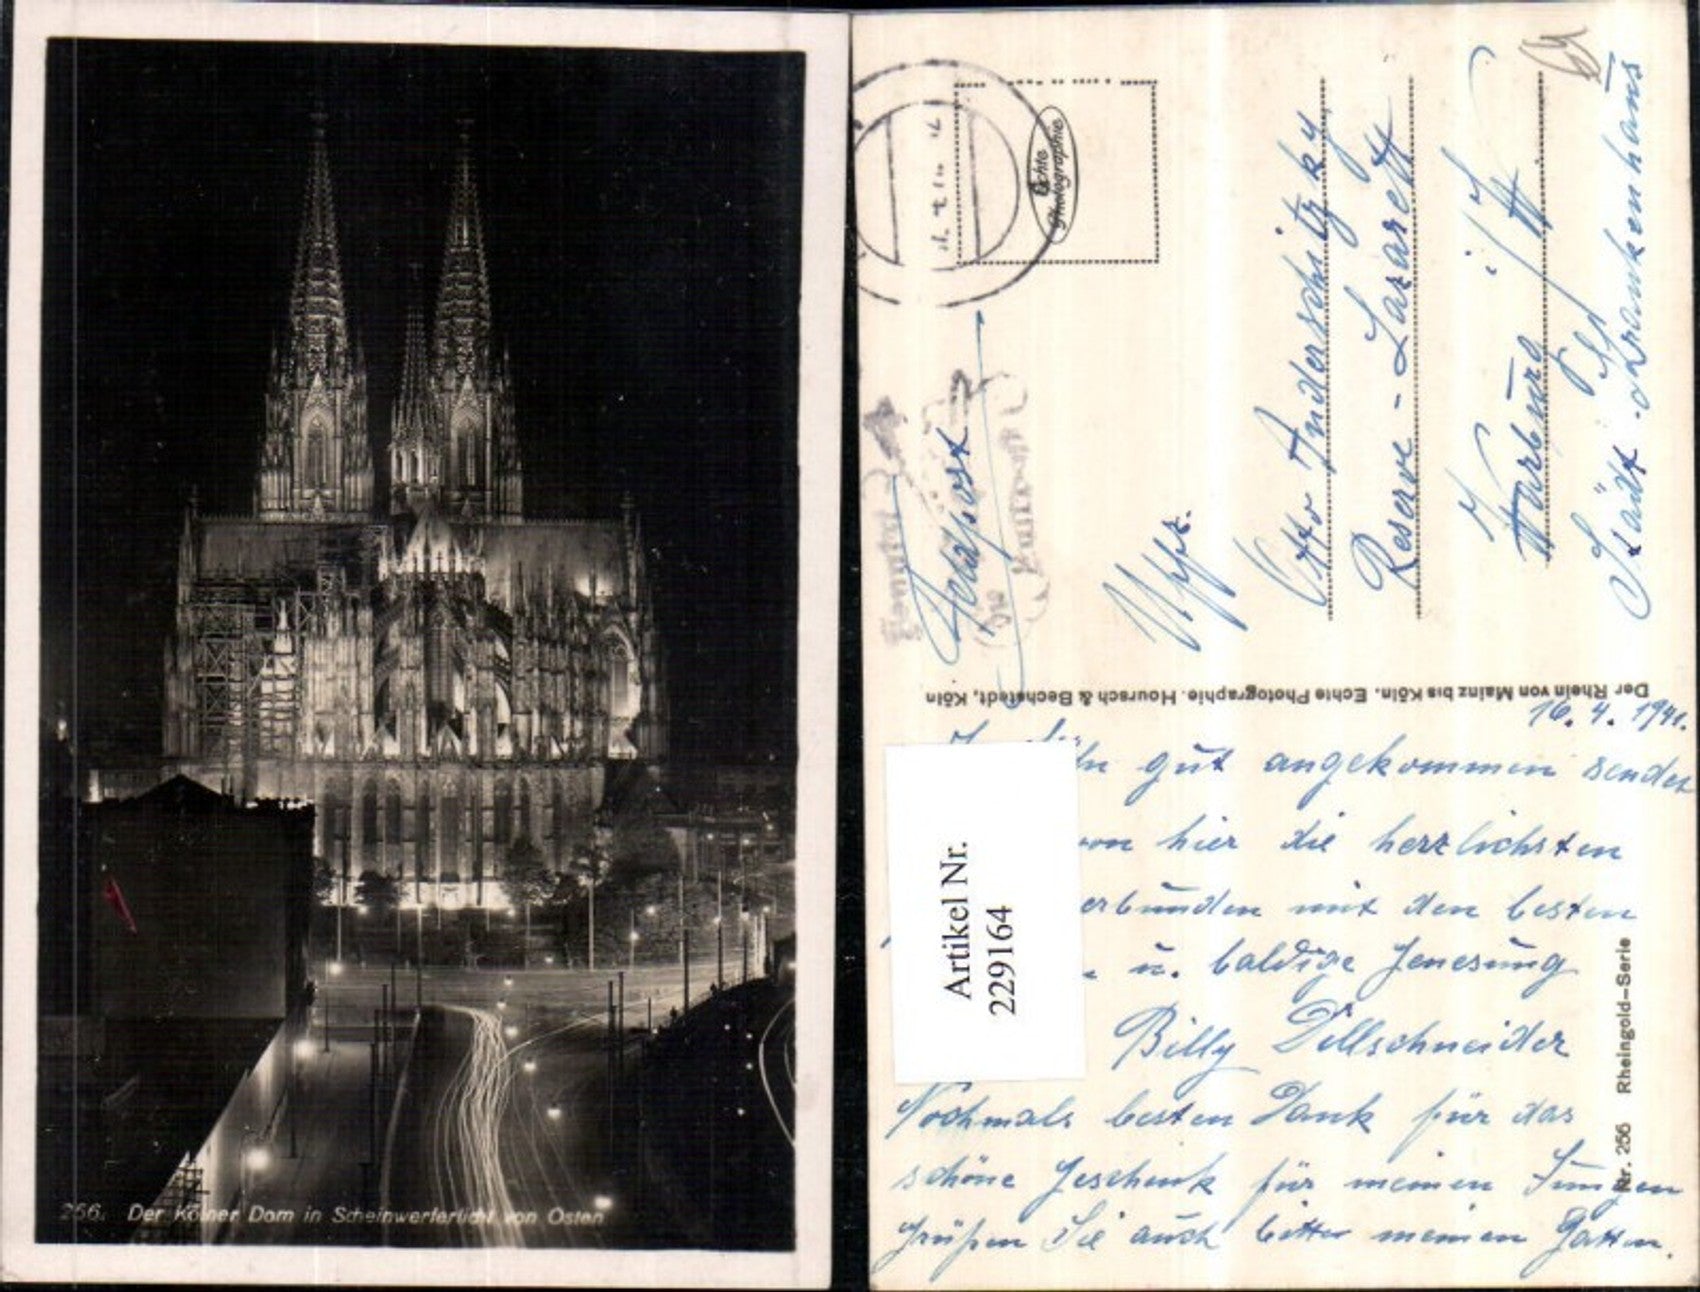 266. Der Kölner Dom in Scheinwerferlicht von Osten
Echte
Photographie
Feldpost
Uffz.
Otto Anderschitzky
Reserve-Lazarett
Warburg i/W
Städt. Krankenhaus
Der Rhein von Mainz bis Köln. Echte Photographie. Hoursch & Bechstedt, Köln
16. 4. 1941.
gut angekommen sendet
von hier die herzlichsten
mit den besten
u. baldige Genesung
Billy Dellschneider
Nochmals besten Dank für das
schöne Geschenk für meinen Jungen
grüßen Sie auch bitte meinen Gatten.
Artikel Nr.
229164
Nr. 256 Rheingold-Serie